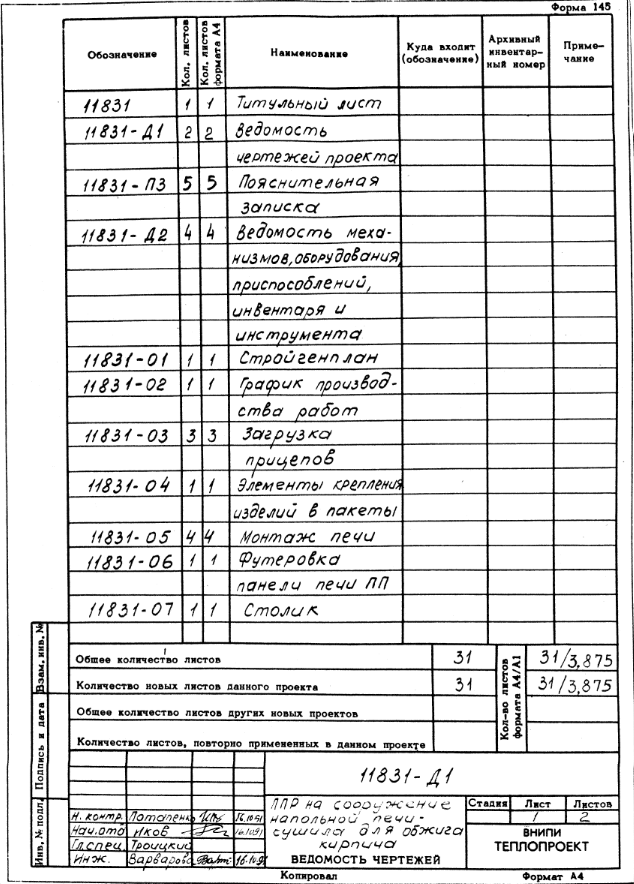 Форма 145
Обозначение Кол. листов Кол. листов формата А4 Наименование Куда входит (обозначение) Архивный инвентар-ный номер Приме-чание
11831 1 1 Титульный лист
11831-Д1 2 2 Ведомость
чертежей проекта
11831-ПЗ 5 5 Пояснительная
записка
11831-Д2 4 4 Ведомость меха-
низмов, оборудования,
приспособлений,
инвентаря и
инструмента
11831-01 1 1 Стройгенплан
11831-02 1 1 График производ-
ства работ
11831-03 3 3 Загрузка
прицепов
11831-04 1 1 Элементы крепления
изделий в пакеты
11831-05 4 4 Монтаж печи
11831-06 1 1 Футеровка
панели печи ПП
11831-07 1 1 Столик
Общее количество листов 31
Количество новых листов данного проекта 31
Общее количество листов других новых проектов
Количество листов, повторно примененных в данном проекте
Кол-во листов формата А4/А1
31/3,875
31/3,875
Взам. инв. №
Подпись и дата
Инв. № подл.
11831-Д1
Н. контр. Потапенко 16.10.91
Нач. отд Иков 16.10.91
Гл. спец. Троицкий
Инж. Варварова 16.10.91
ППР на сооружение
напольной печи-
сушила для обжига
кирпича
ВЕДОМОСТЬ ЧЕРТЕЖЕЙ
Стадия Лист Листов
1 2
ВНИПИ
ТЕПЛОПРОЕКТ
Копировал Формат А4